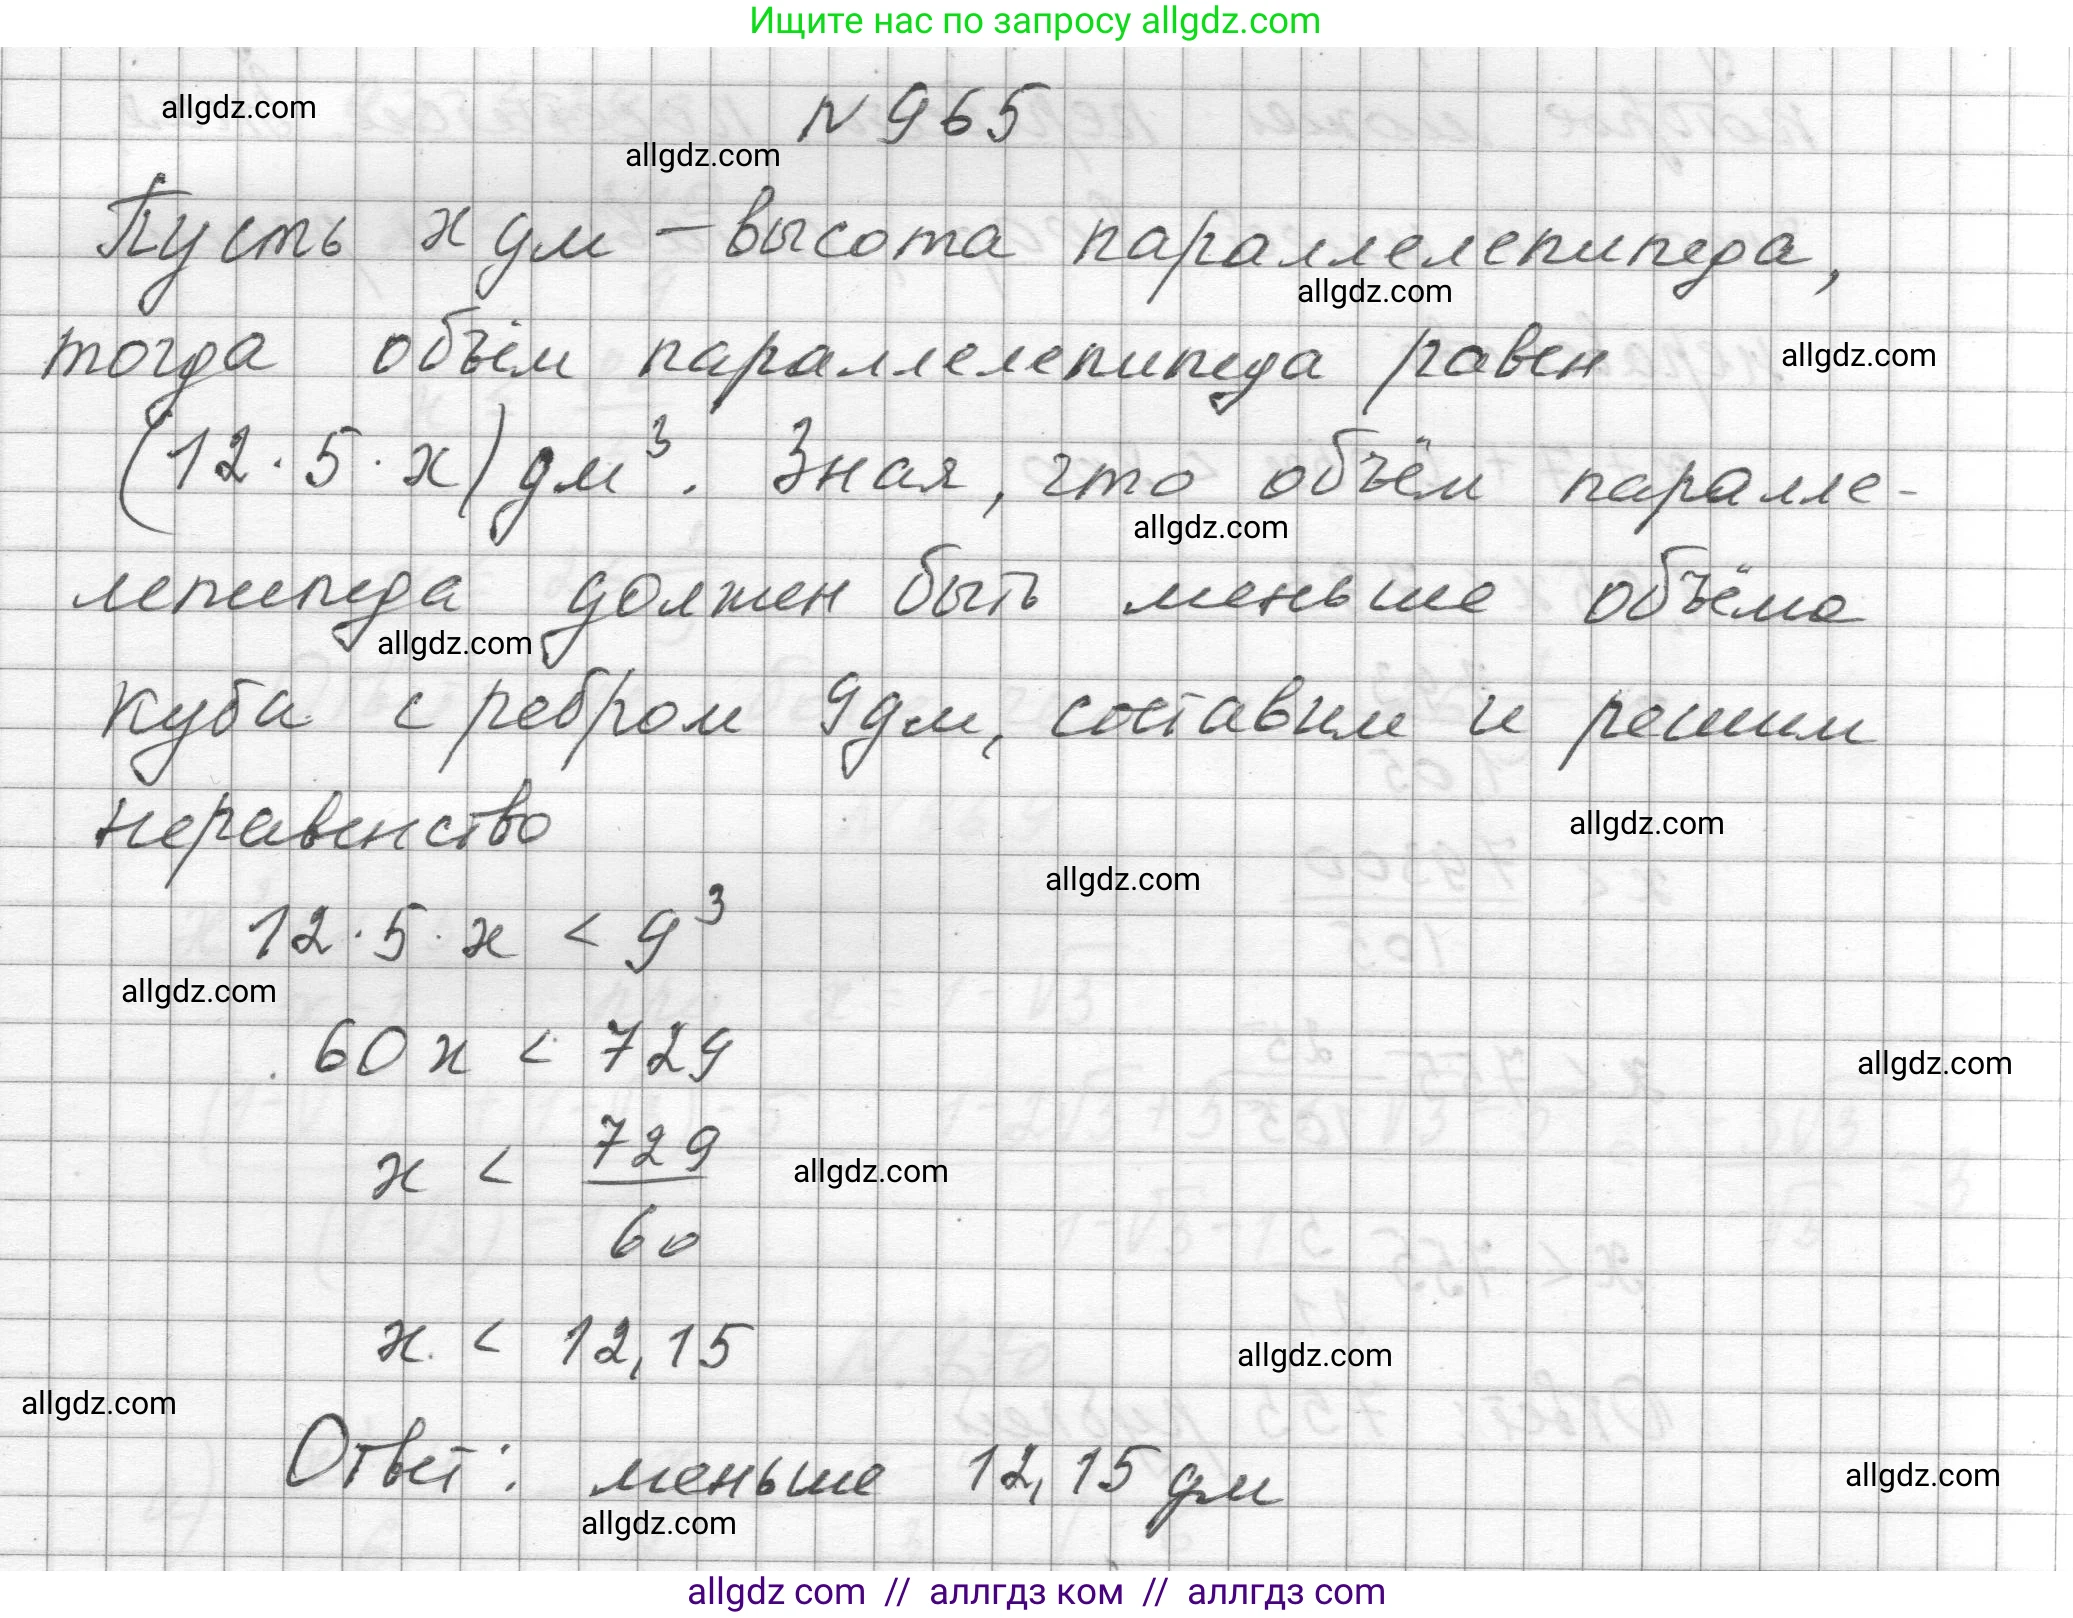 Ищите нас по запросу allgdz.com
allgdz.com
N 965
allgdz.com
Пусть x дм – высота параллелепипеда,
allgdz.com
тогда объём параллелепипеда равен
allgdz.com
(12·5·x) дм³. Зная, что объём паралле-
allgdz.com
лепипеда должен быть меньше объёма
allgdz.com
куба с ребром 9дм, составим и решим
неравенство
allgdz.com
allgdz.com
12·5·x < 9³
allgdz.com
60x < 729
allgdz.com
x < 729/60
allgdz.com
x < 12,15
allgdz.com
allgdz.com
Ответ: меньше 12,15 дм
allgdz.com
allgdz.com
allgdz com // аллгдз ком // аллгдз com